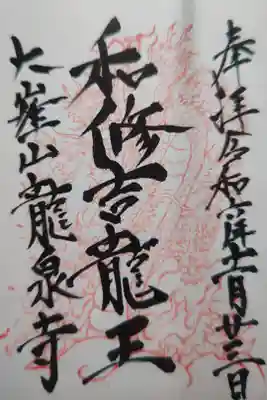 奉拝 令和六年十一月廿三日
和修吉龍王
大峯山龍泉寺